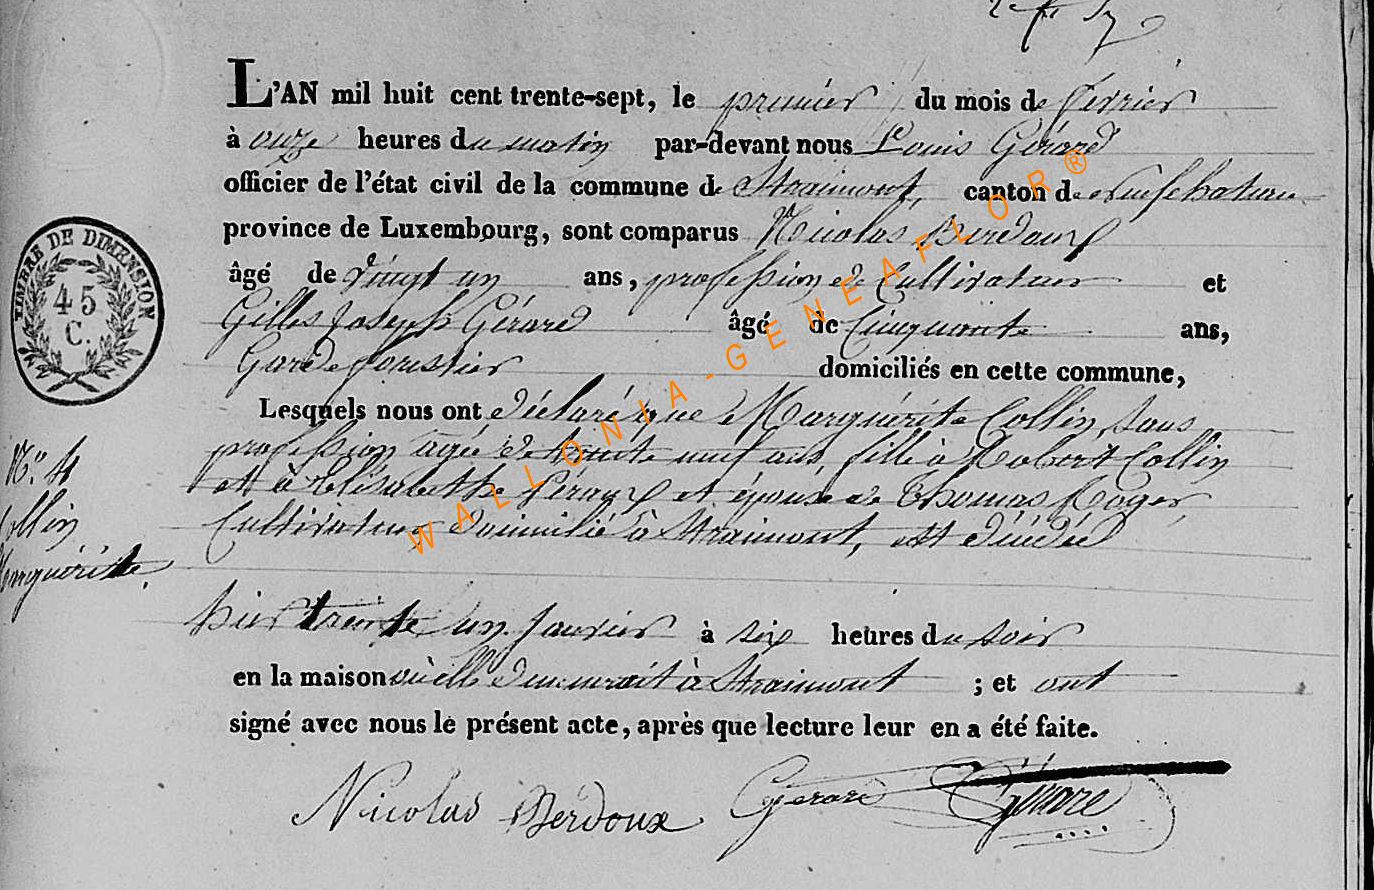 L'AN mil huit cent trente-sept, le premier du mois de fevrier
à onze heures du matin par-devant nous Louis Gérard
officier de l'état civil de la commune de Straimont, canton de Neufchateau
province de Luxembourg, sont comparus Nicolas Berdoux
âgé de vingt un ans, profession de Cultivateur et
Gilles Joseph Gérard âgé de Cinquante ans,
Garde forestier domiciliés en cette commune,
Lesquels nous ont déclaré que Marguérite Collin, sans
profession agée de trente neuf ans, fille à Robert Collin
et à Elisabethe et épouse de Thomas Roger,
Cultivateur domicilié à Straimont, est décédée
hier trente un Janvier à six heures du soir
en la maison où elle demeurait à Straimont ; et ont
signé avec nous le présent acte, après que lecture leur en a été faite.
Nicolas Bérdoux Gerard Gérard
TIMBRE DE DIMENSION
45
C.
N.° 4
Collin
Marguérite.
WALLONIA-GENEAFLOR®